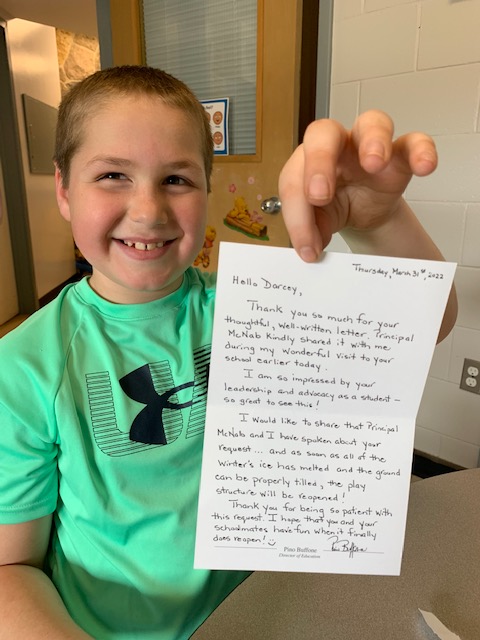 Thursday, March 31st, 2022
Hello Darcey,
Thank you so much for your
thoughtful, well-written letter. Principal
McNab kindly shared it with me
during my wonderful visit to your
school earlier today.
I am so impressed by your
leadership and advocacy as a student –
so great to see this!
I would like to share that Principal
McNab and I have spoken about your
request... and as soon as all of the
Winter's ice has melted and the ground
can be properly tilled, the play
structure will be reopened!
Thank you for being so patient with
this request. I hope that you and your
schoolmates have fun when it finally
does reopen!
Pino Buffone
Director of Education